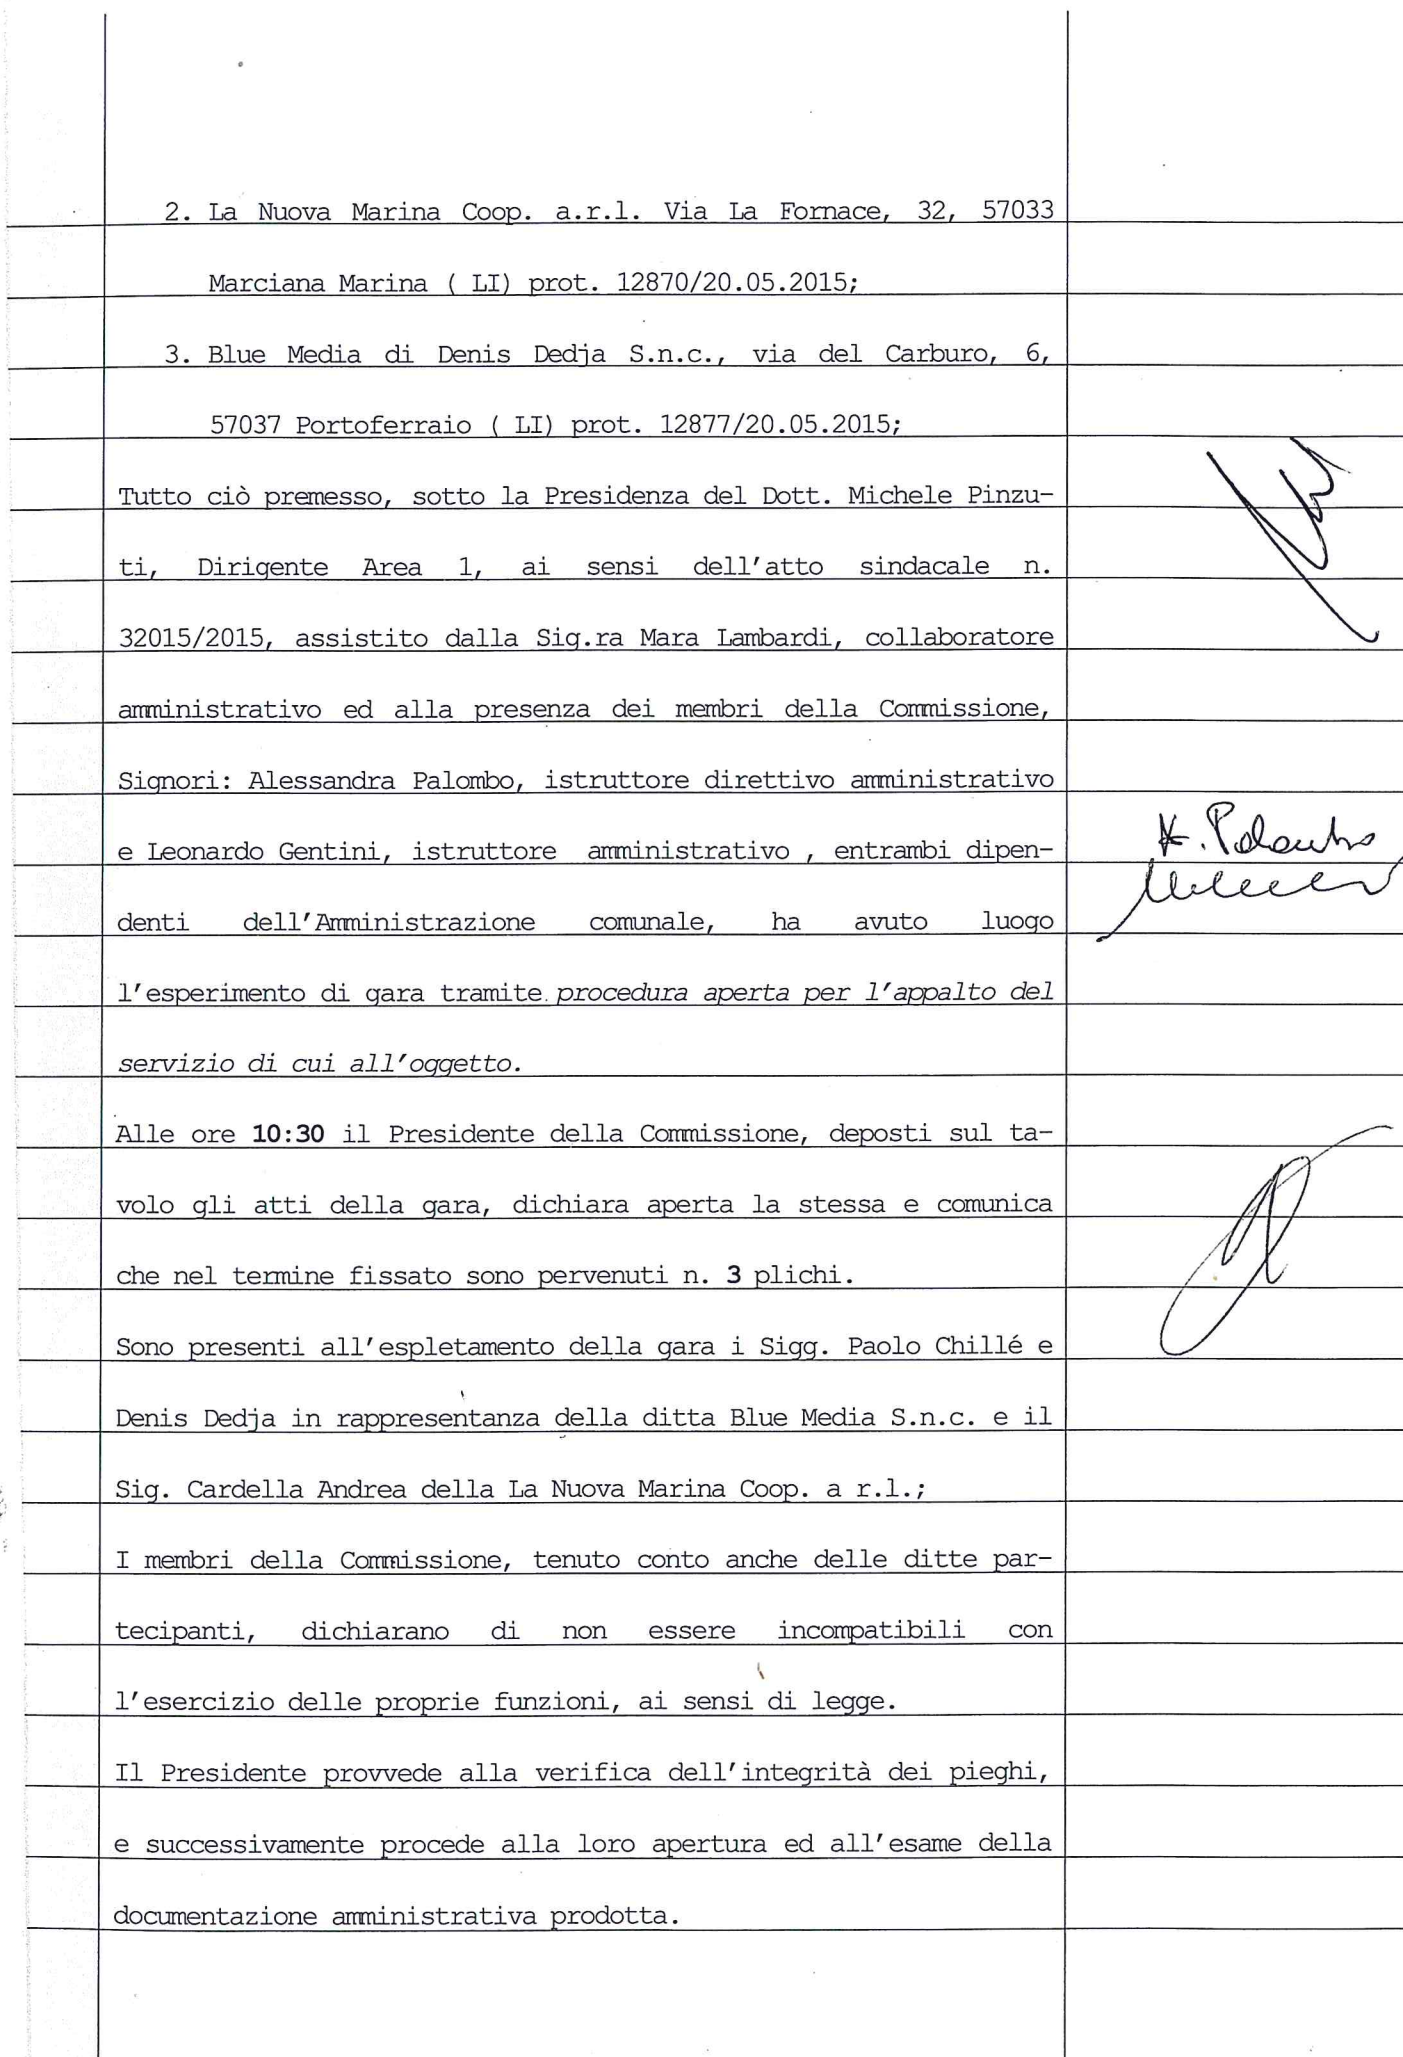 2. La Nuova Marina Coop. a.r.l. Via La Fornace, 32, 57033
Marciana Marina ( LI) prot. 12870/20.05.2015;
3. Blue Media di Denis Dedja S.n.c., via del Carburo, 6,
57037 Portoferraio ( LI) prot. 12877/20.05.2015;
Tutto ciò premesso, sotto la Presidenza del Dott. Michele Pinzu-
ti, Dirigente Area 1, ai sensi dell'atto sindacale n.
32015/2015, assistito dalla Sig.ra Mara Lambardi, collaboratore
amministrativo ed alla presenza dei membri della Commissione,
Signori: Alessandra Palombo, istruttore direttivo amministrativo
e Leonardo Gentini, istruttore amministrativo , entrambi dipen-
A. Palombo
denti dell'Amministrazione comunale, ha avuto luogo
l'esperimento di gara tramite procedura aperta per l'appalto del
servizio di cui all'oggetto.
Alle ore 10:30 il Presidente della Commissione, deposti sul ta-
volo gli atti della gara, dichiara aperta la stessa e comunica
che nel termine fissato sono pervenuti n. 3 plichi.
Sono presenti all'espletamento della gara i Sigg. Paolo Chillé e
Denis Dedja in rappresentanza della ditta Blue Media S.n.c. e il
Sig. Cardella Andrea della La Nuova Marina Coop. a r.l.;
I membri della Commissione, tenuto conto anche delle ditte par-
tecipanti, dichiarano di non essere incompatibili con
l'esercizio delle proprie funzioni, ai sensi di legge.
Il Presidente provvede alla verifica dell'integrità dei pieghi,
e successivamente procede alla loro apertura ed all'esame della
documentazione amministrativa prodotta.